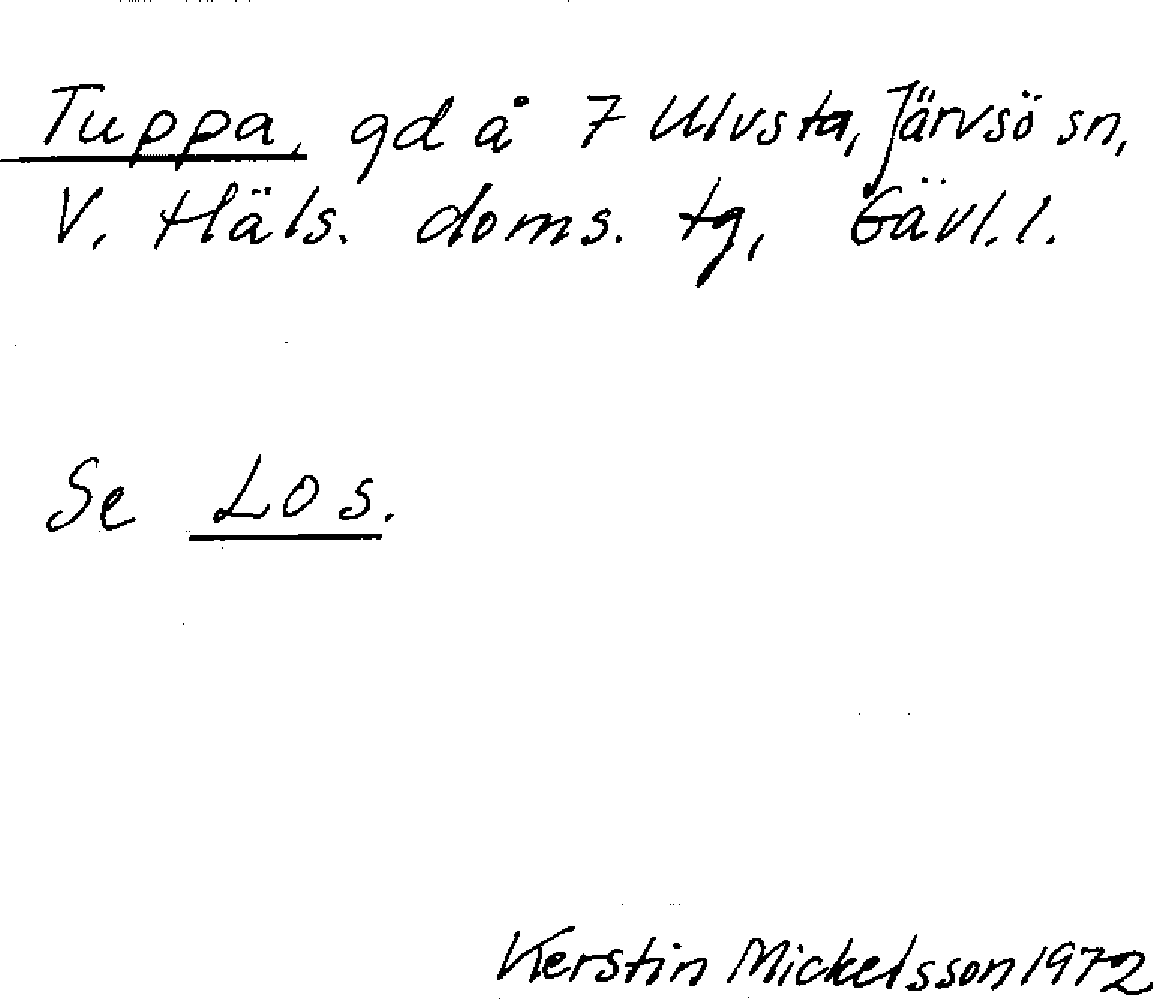 Tuppa, gd å 7 Ulvsta, Järvsö sn,
V. Häls. doms. tg, Gävl. l.
Se Los.
Kerstin Mickelsson 1972